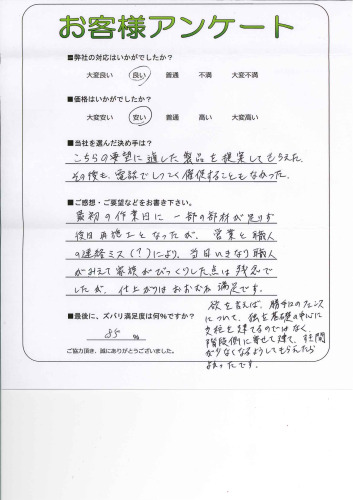 お客様アンケート
■弊社の対応はいかがでしたか?
大変良い 良い 普通 不満 大変不満
■価格はいかがでしたか?
大変安い 安い 普通 高い 大変高い
■当社を選んだ決め手は?
こちらの要望に適した製品を提案してもらえた。
その後も、電話でしつこく催促することもなかった。
■ご感想・ご要望などをお書き下さい。
最初の作業日に一部の部材が足りず
後日再施工となったが、営業と職人
の連絡ミス(?)により、当日いきなり職人
がみえて家族がびっくりした点は残念で
したが、仕上がりはおおむね満足です。
欲を言えば、勝手口のフェンス
について、独立基礎の中心に
支柱を建てるのではなく、
階段側に寄せて建て、隙間
が少なくなるようしてもらえたら
よかったです。
■最後に、ズバリ満足度は何%ですか?
85 %
ご協力頂き、誠にありがとうございました。